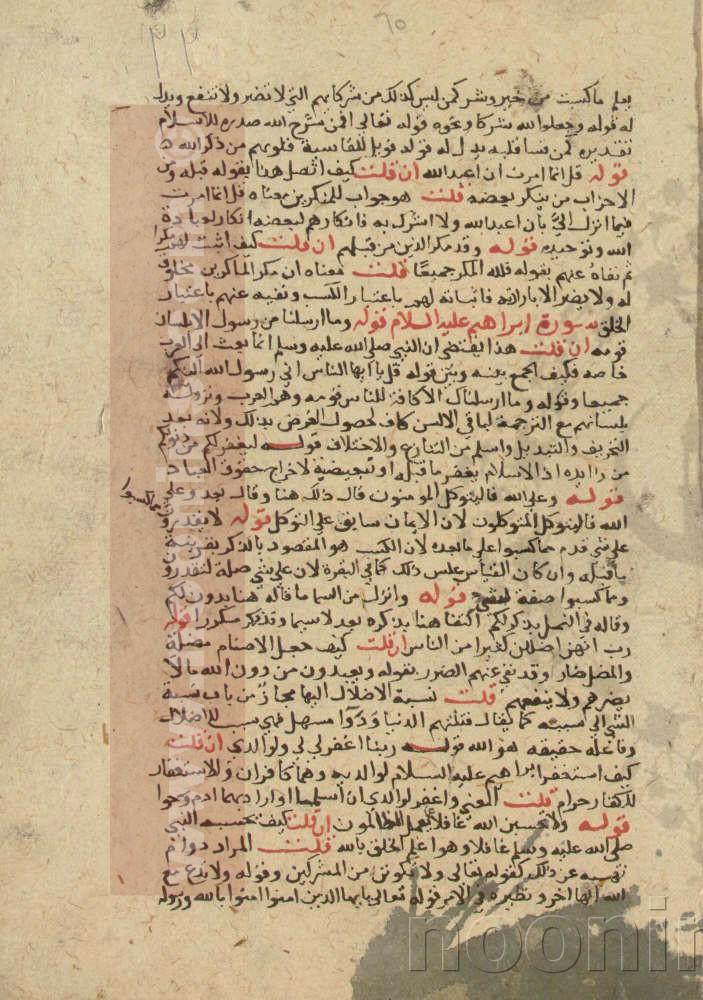 بعلم ماكسبت من خير وشر كمن ليس كذلك من شركايهم التي لا تضر ولا تنفع ويدل
له قوله وجعلوا لله شركا ونحوه قوله تعالي افمن شرح الله صدره للاسلام
تقديره كمن قسا قلبه يدل له قوله فويل للقاسية قلوبهم من ذكر الله
قوله قل انما امرت ان اعبد الله ان قلت كيف اتصل هذا بقوله قبله ومن
الاحزاب من ينكر بعضه قلت هو جواب للمنكرين معناه قل انما امرت
فيما انزل اليّ بان اعبد الله ولا اشرك به فانكارهم لبعضه انكار لعبادة
الله وتوحيده قوله وقد مكر الذين من قبلهم ان قلت كيف اثبت لهم مكرا
ثم نفاه عنهم بقوله فلله المكر جميعا قلت معناه ان مكر الماكرين مخلوق
له ولا يضر الا بارادته فاثباته لهم باعتبار الكسب ونفيه عنهم باعتبار
الخلق سورة ابراهيم عليه السلام قوله وما ارسلنا من رسول الا بلسان
قومه ان قلت هذا يقتضي ان النبي صلي الله عليه وسلم انما بعث الي العرب
خاصه فكيف الجمع بينه وبين قوله قل يا ايها الناس اني رسول الله اليكم
جميعا وقوله وما ارسلناك الا كافة للناس قومه وهو العرب ونزوله
بلسانهم مع الترجمة لباقي الالسن كاف لحصول الغرض بذلك ولانه ابعد
التحريف والتبديل واسلم من التنازع والاختلاف قوله ليغفر لكم من ذنوبكم
من زايده اذ الاسلام يغفر ما قبله او تبعيضية لاخراج حقوق العباد
قوله وعلي الله فاليتوكل المومنون قال ذلك هنا وقال بعد وعلي
الله فاليتوكل المتوكلون لان الايمان سابق علي التوكل قوله لا يقدرون
علي شي قدم مما كسبوا علي مابعده لان الكسب هو المقصود بالذكر بقرينة
ماقبله وان كان القياس عكس ذلك كما في البقرة لان علي شي صلة لتقدرون
ومما كسبوا صفة لشي قوله وانزل من السما ما قاله هنا بدون لكم
وقاله في النمل بذكر لكم اكتفا هنا بذكره بعد لاسيما وقد ذكر مكررا قوله
رب انهن اضللن كثيرا من الناس ان قلت كيف جعل الاصنام مضلة
والمضل ضار وقد نفي عنهم الضرر بقوله ويعبدون من دون الله ما لا
يضرهم ولا ينفعهم قلت نسبة الاضلال اليها مجاز من باب نسبة
الشي الي سببه كما يقال فتنتهم الدنيا ودوآ مسهل فهي سبب للاضلال
وفاعله حقيقه هو الله قوله ربنا اغفر لي ولوالدي ان قلت
كيف استغفر ابراهيم عليه السلام لوالديه وهما كافران والاستغفار
للكفار حرام قلت المعني واغفر لوالدي ان اسلما او اراد بهما ادم وحوا
قوله ولا تحسبن الله غافلا عما يعمل الظالمون ان قلت كيف يحسبه النبي
صلي الله عليه وسلم غافلا وهو اعلم الخلق بالله قلت المراد دوام
نهيه عن ذلك كقوله تعالي ولا تكونن من المشركين وقوله ولا تدع مع
الله الها اخر ونظيره في الامر قوله تعالي يايها الذين امنوا امنوا بالله ورسوله